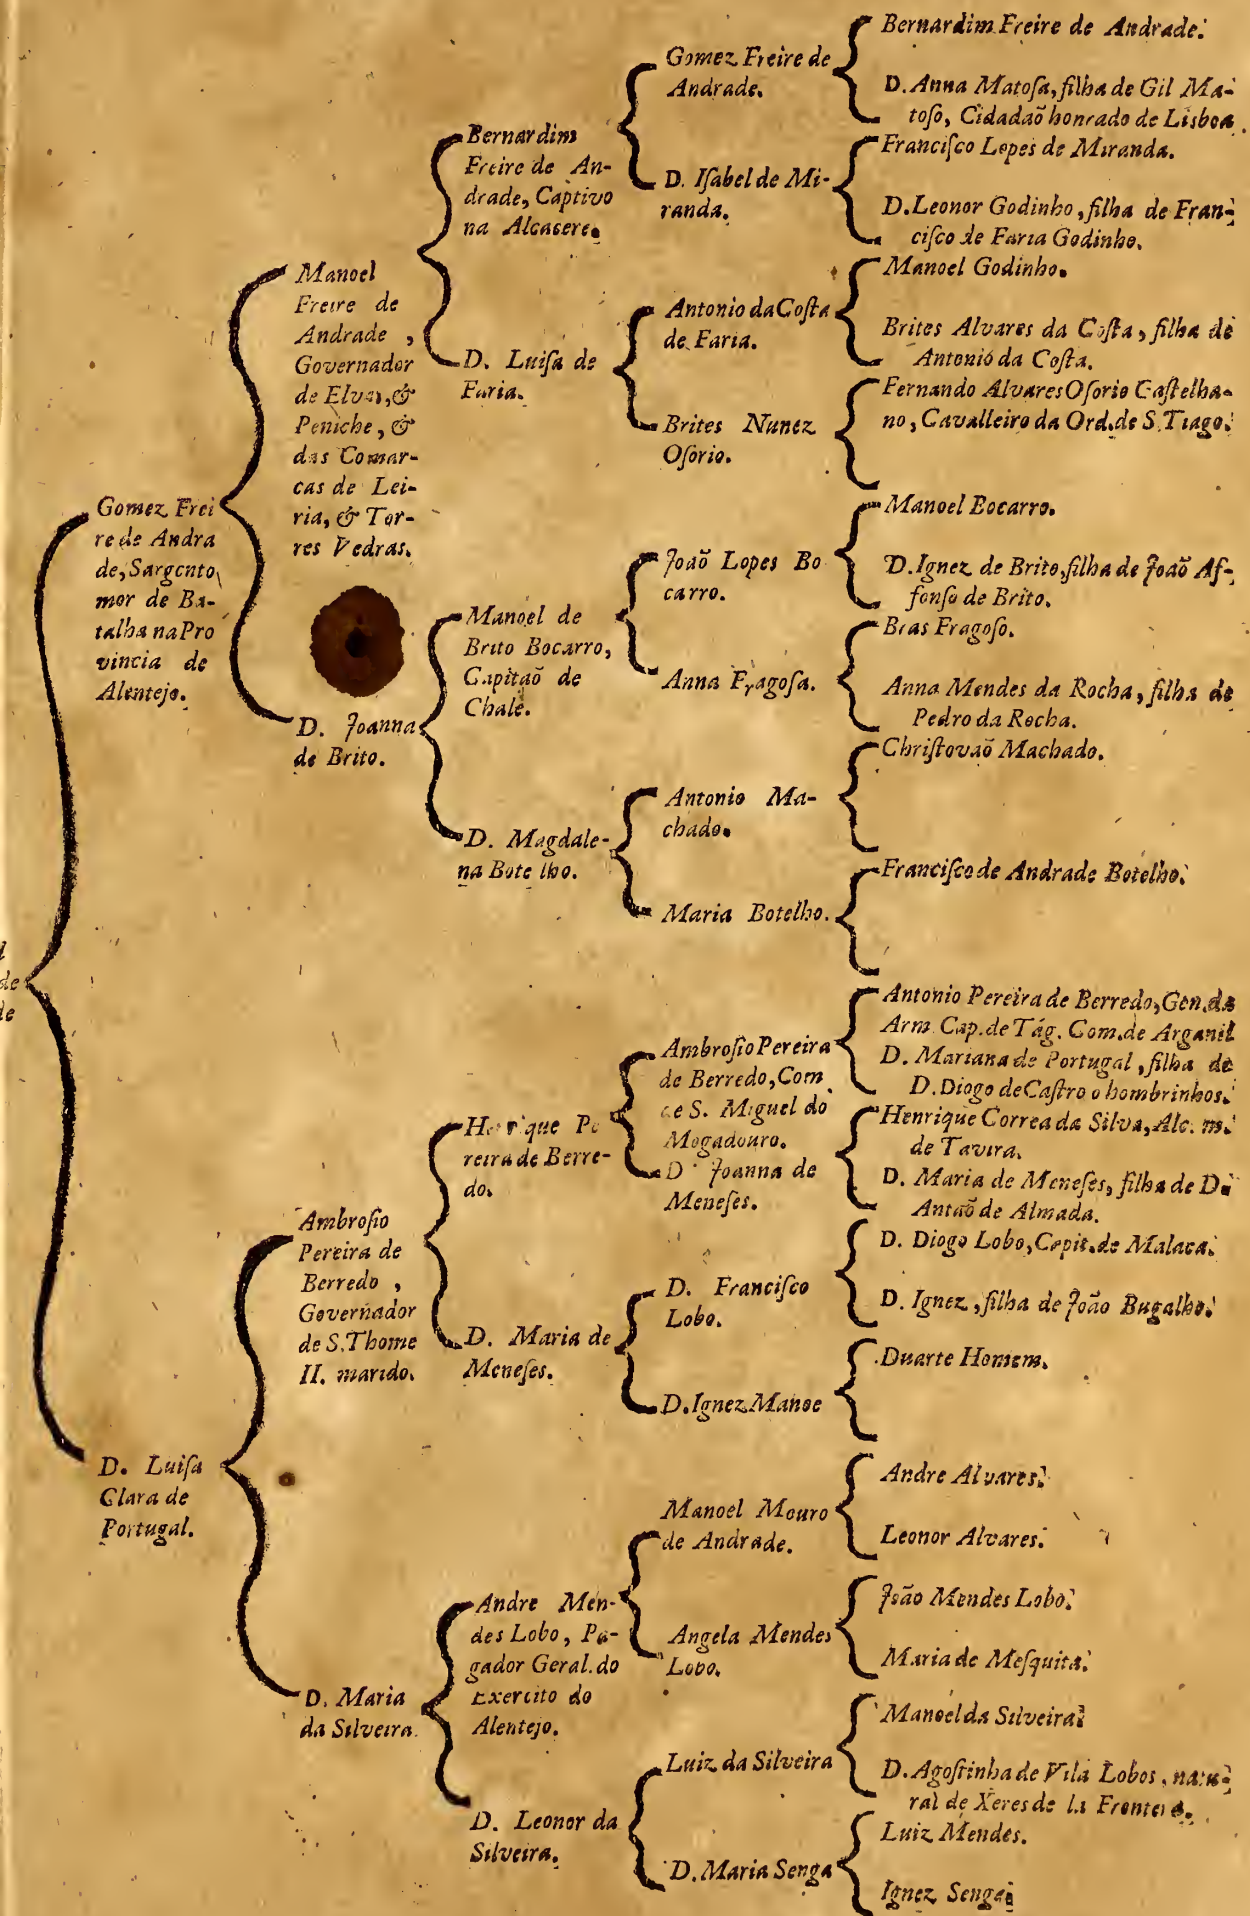 de
de
Gomez Frei
re de Andra
de, Sargento
mor de Ba-
talha na Pro
vincia de
Alentejo.
D. Luiſa
Clara de
Portugal.
Manoel
Freire de
Andrade ,
Governador
de Elvas, &
Peniche, &
das Comar-
cas de Lei-
ria, & Tor-
res Vedras.
D. Joanna
de Brito.
Ambroſio
Pereira de
Berredo ,
Governador
de S. Thome
II. marido.
D. Maria
da Silveira.
Bernardim
Freire de An-
drade, Captivo
na Alcacere.
D. Luiſa de
Faria.
Manoel de
Brito Bocarro,
Capitaõ de
Chale.
D. Magdale-
na Botelho.
Henrique Pe
reira de Berre-
do.
D. Maria de
Meneſes.
Andre Men-
des Lobo, Pa-
gador Geral do
Exercito do
Alentejo.
D. Leonor da
Silveira.
Gomez Freire de
Andrade.
D. Iſabel de Mi-
randa.
Antonio da Coſta
de Faria.
Brites Nunez
Oſorio.
Joaõ Lopes Bo
carro.
Anna Fragoſa.
Antonio Ma-
chado.
Maria Botelho.
Ambroſio Pereira
de Berredo, Com
de S. Miguel do
Mogadouro.
D. Joanna de
Meneſes.
D. Franciſco
Lobo.
D. Ignez Manoe
Manoel Mouro
de Andrade.
Angela Mendes
Lobo.
Luiz da Silveira
D. Maria Senga
Bernardim Freire de Andrade.
D. Anna Matoſa, filha de Gil Ma-
toſo, Cidadaõ honrado de Lisboa
Franciſco Lopes de Miranda.
D. Leonor Godinho, filha de Fran-
ciſco de Faria Godinho.
Manoel Godinho.
Brites Alvares da Coſta, filha de
Antonio da Coſta.
Fernando Alvares Oſorio Caſtelha-
no, Cavalleiro da Ord. de S. Tiago.
Manoel Bocarro.
D. Ignez de Brito, filha de Joaõ Af-
fonſo de Brito.
Bras Fragoſo.
Anna Mendes da Rocha, filha de
Pedro da Rocha.
Chriſtovaõ Machado.
Franciſco de Andrade Botelho.
Antonio Pereira de Berredo, Gen. da
Arm. Cap. de Tág. Com. de Arganil
D. Mariana de Portugal, filha de
D. Diogo de Caſtro o hombrinhos.
Henrique Correa da Silva, Alc. m.
de Tavira.
D. Maria de Meneſes, filha de D.
Antaõ de Almada.
D. Diogo Lobo, Capit. de Malaca.
D. Ignez, filha de Joaõ Bugalho.
Duarte Homem.
Andre Alvares.
Leonor Alvares.
Joaõ Mendes Lobo.
Maria de Meſquita.
Manoel da Silveira.
D. Agoſtinha de Vila Lobos, natu-
ral de Xeres de la Frontera.
Luiz Mendes.
Ignez Senga.